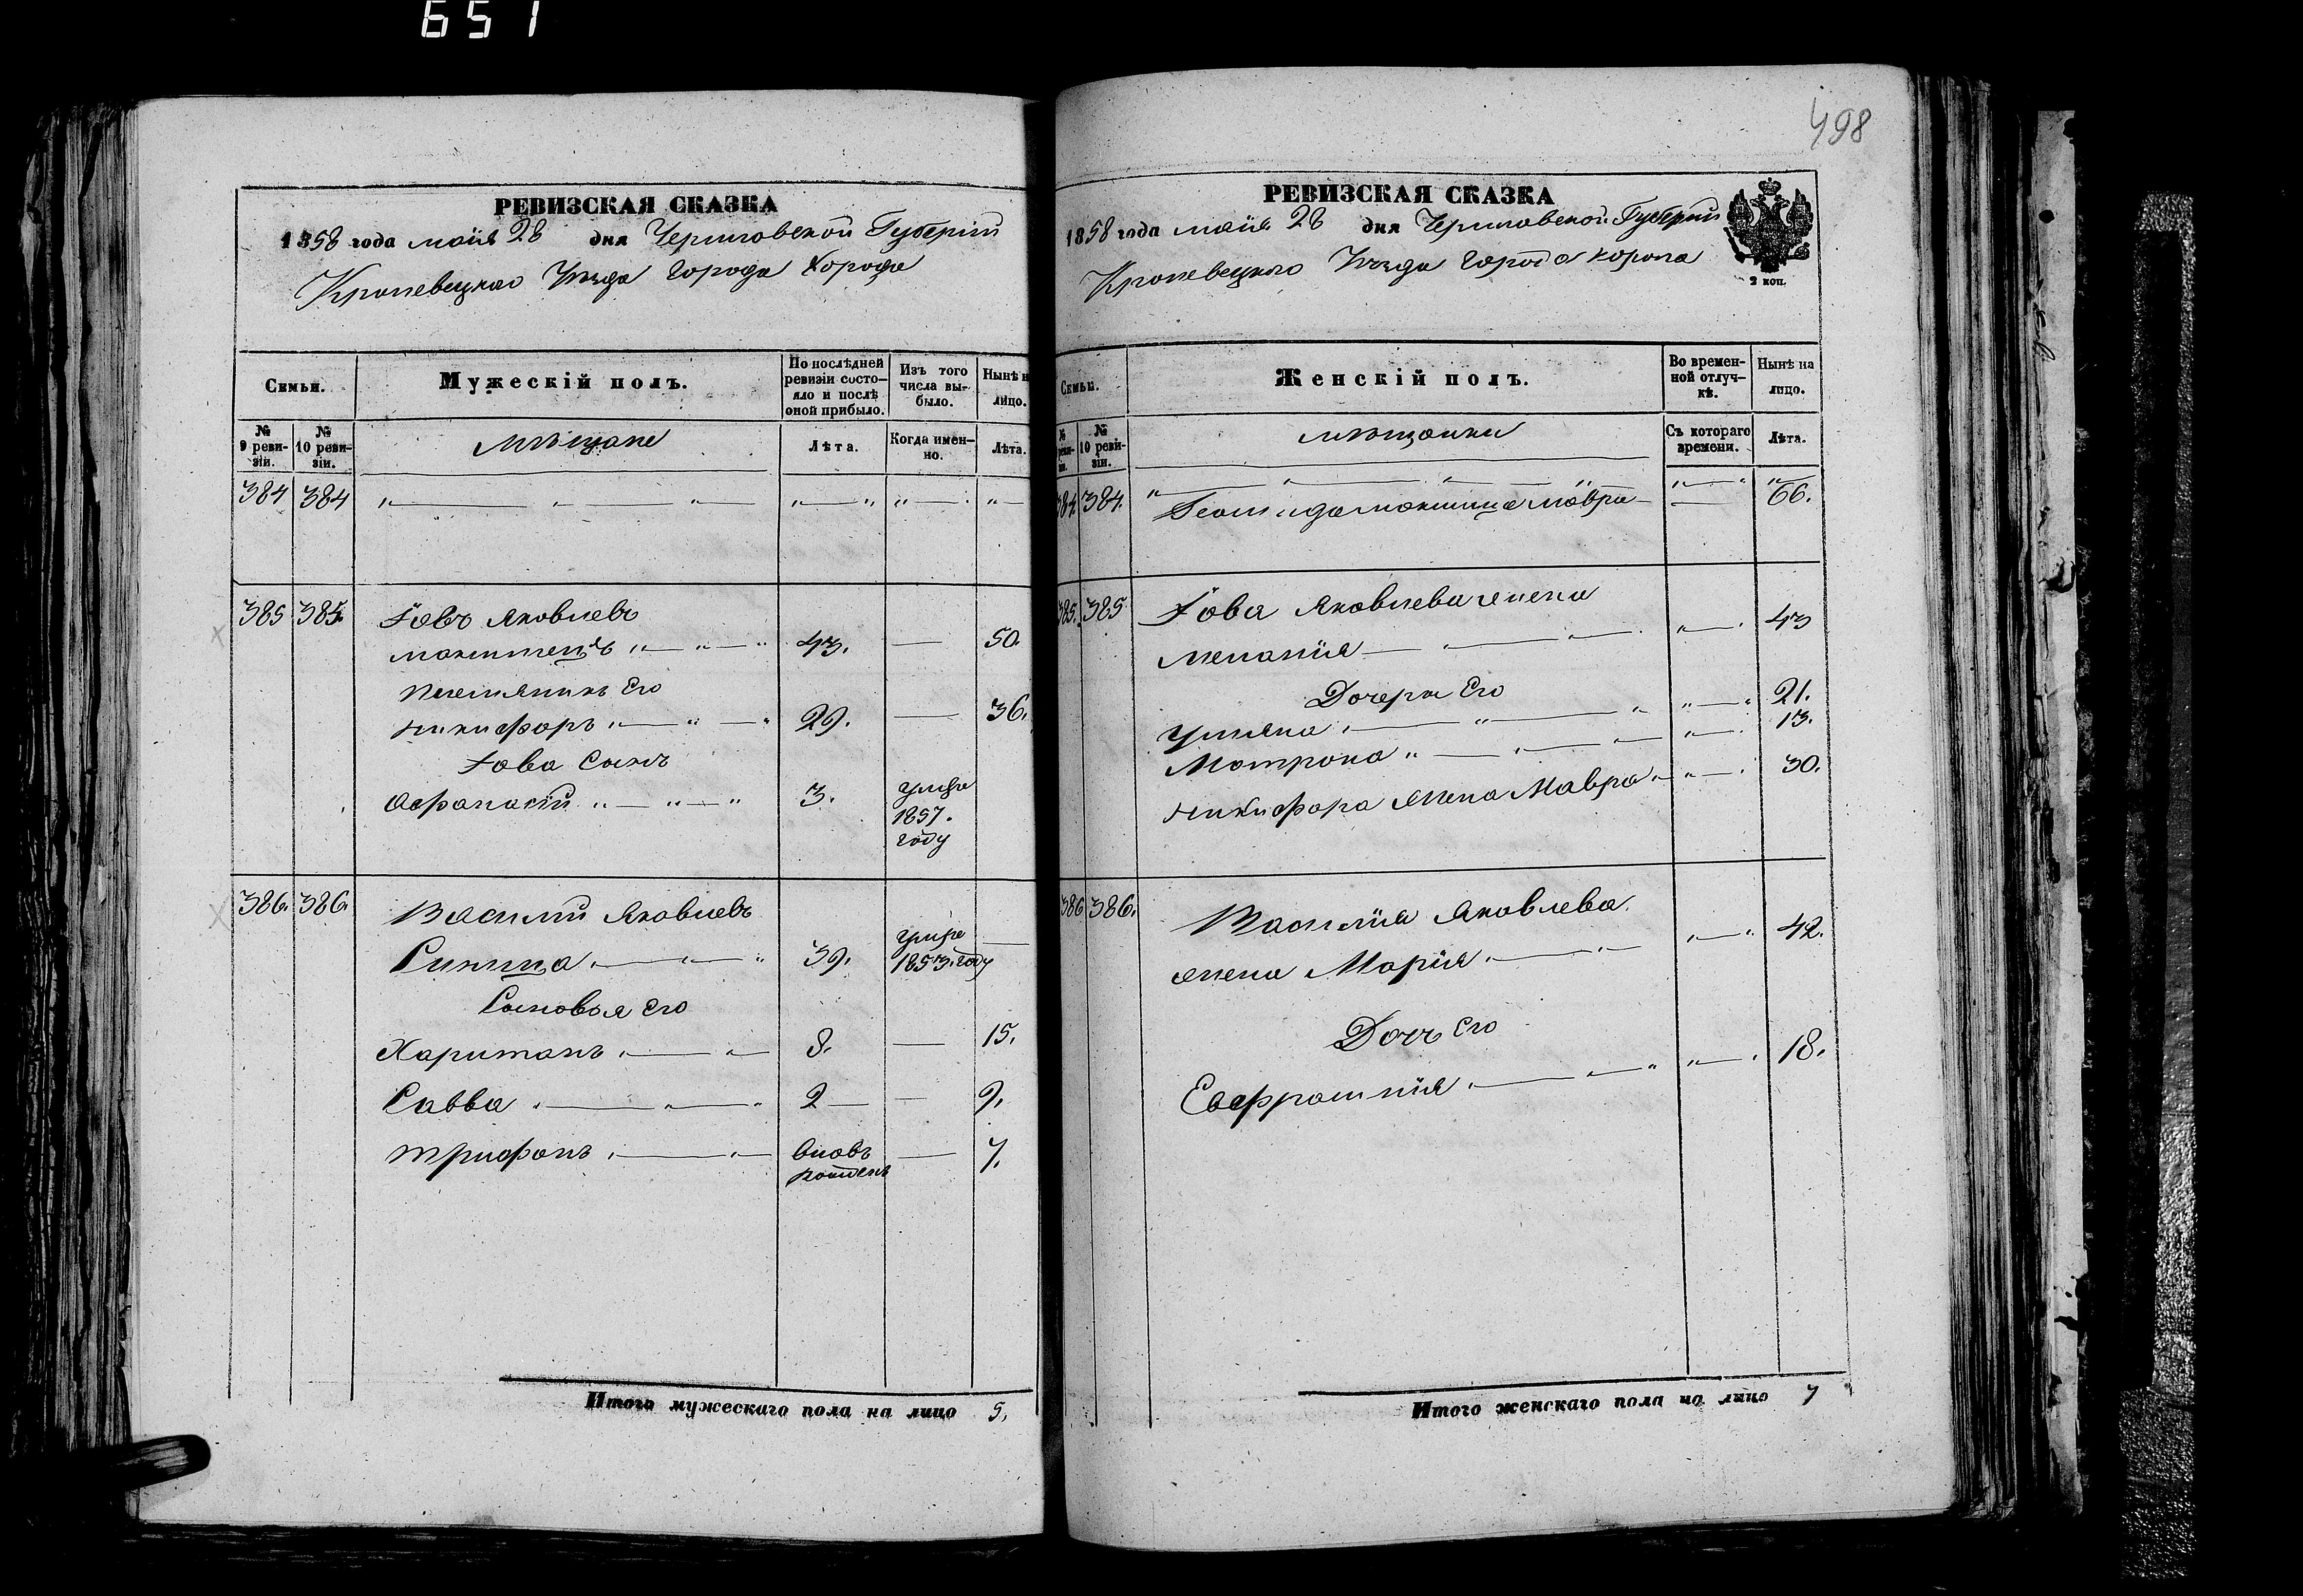 651
РЕВИЗСКАЯ СКАЗКА
1858 года маія 28 дня Черниговской Губерніи
Кролевецкаго Уѣзда Города Коропа
Семьи.
Мужескій полъ.
По послѣдней ревизіи состояло и послѣ оной прибыло.
Изъ того числа выбыло.
Нынѣ н
лицо.
№ 9 ревизіи.
№ 10 ревизіи.
мѣщане
Лѣта.
Когда именно.
Лѣта.
384 384
385 385 Іовъ Яковлевъ
43. 50.
племяникъ Его
Никифоръ 29. 36.
Іова Сынъ
Афанасій 3. умре
1857.
году
386. 386. Василій Яковлевъ
Синица 39. умре
1853. году
Сыновья Его
Харитонъ 8. 15.
Савва 2 9.
Трифонъ вновь рожденъ 7.
Итого мужескаго пола на лицо 5.
498
РЕВИЗСКАЯ СКАЗКА
1858 года маія 28 дня Черниговской Губерніи
Кролевецкаго Уѣзда города Коропа
2 коп.
Семьи.
Женскій полъ.
Во временной отлучкѣ.
Нынѣ на лицо.
№ 10 ревизіи.
мѣщанки
Съ котораго времени.
Лѣта.
384. 384. Мавра 66.
385. 385 Іова Яковлева жена
Меланія 43
Дочери Его
Ульяна 21.
Матрона 13.
Никифора жена Мавра 30.
386 386. Василія Яковлева
жена Марія 42.
Дочь Его
Евфросинія 18.
Итого женскаго пола на лицо 7